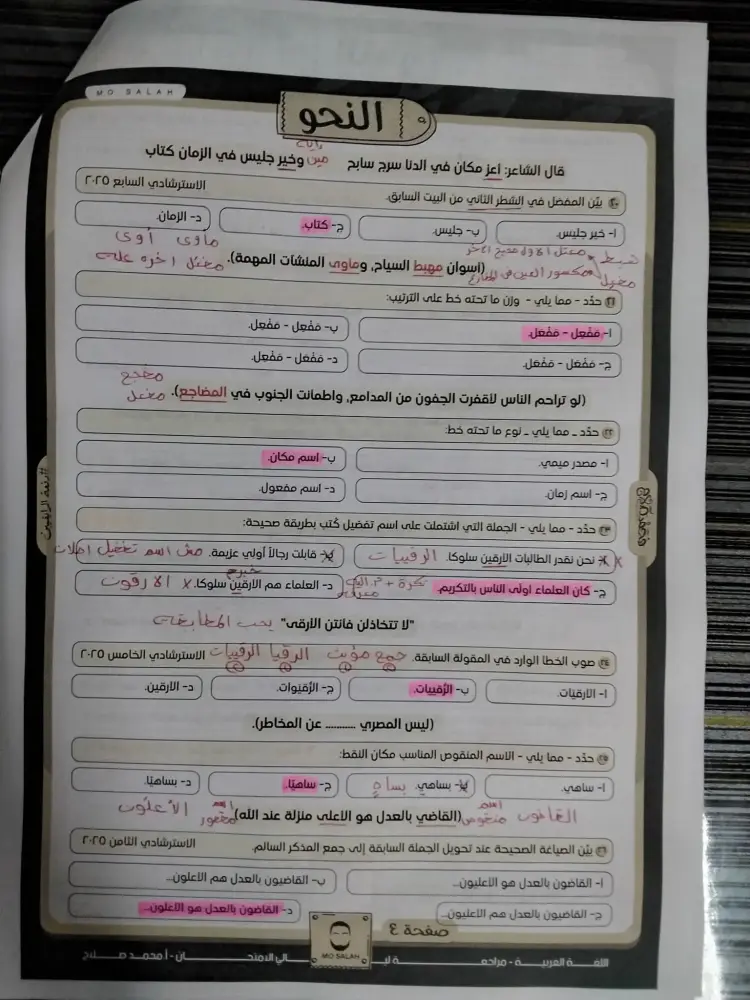 MO SALAH
النحو
٩
قال الشاعر: أعز مكان في الدنا سرج سابح وخير جليس في الزمان كتاب
٢٠ بيّن المفضل في الشطر الثاني من البيت السابق. الاسترشادي السابع ٢٠٢٥
ا- خير جليس. ب- جليس. ج- كتاب. د- الزمان.
مأوى أوى
(أسوان مهبط السياح، ومأوى المنشآت المهمة). مفعَل آخره علة
٢١ حدّد - مما يلي - وزن ما تحته خط على الترتيب:
ا- مَفْعِل - مَفْعَل. ب- مَفْعِل - مَفْعِل.
ج- مَفْعَل - مَفْعَل. د- مَفْعَل - مَفْعِل.
مضجع
(لو تراحم الناس لأقفرت الجفون من المدامع، واطمأنت الجنوب في المضاجع). مفعل
٢٢ حدّد - مما يلي - نوع ما تحته خط:
ا- مصدر ميمي. ب- اسم مكان.
ج- اسم زمان. د- اسم مفعول.
٢٣ حدّد - مما يلي - الجملة التي اشتملت على اسم تفضيل كُتب بطريقة صحيحة:
ا- نحن نقدر الطالبات الأرقين سلوكا. الرقييات ب- قابلت رجالاً أولي عزيمة. مش اسم تفضيل
ج- كان العلماء أولى الناس بالتكريم. نكرة + د- العلماء هم الأرقين سلوكا. x الأرقون
"لا تتخاذلن فأنتن الأرقى" يجب المطابقة
٢٤ صوب الخطأ الوارد في المقولة السابقة. جمع مؤنث الرقيا الرقييات الاسترشادي الخامس ٢٠٢٥
ا- الأرقيات. ب- الرُّقييات. ج- الرُّقيوات. د- الأرقين.
(ليس المصري .......... عن المخاطر).
٢٥ حدّد - مما يلي - الاسم المنقوص المناسب مكان النقط:
ا- ساهي. ب- بساهي. بساهٍ ج- ساهيًا. د- بساهيًا.
القاضون اسم منقوص (القاضي بالعدل هو الأعلى منزلة عند الله) اسم مقصور الأعلون
٢٦ بيّن الصياغة الصحيحة عند تحويل الجملة السابقة إلى جمع المذكر السالم. الاسترشادي الثامن ٢٠٢٥
ا- القاضون بالعدل هو الأعليون... ب- القاضيون بالعدل هم الأعلون...
ج- القاضيون بالعدل هم الأعليون... د- القاضون بالعدل هو الأعلون...
صفحة ٤
MO SALAH
اللغة العربية - مراجعة ليالي الامتحان - أ محمد صلاح